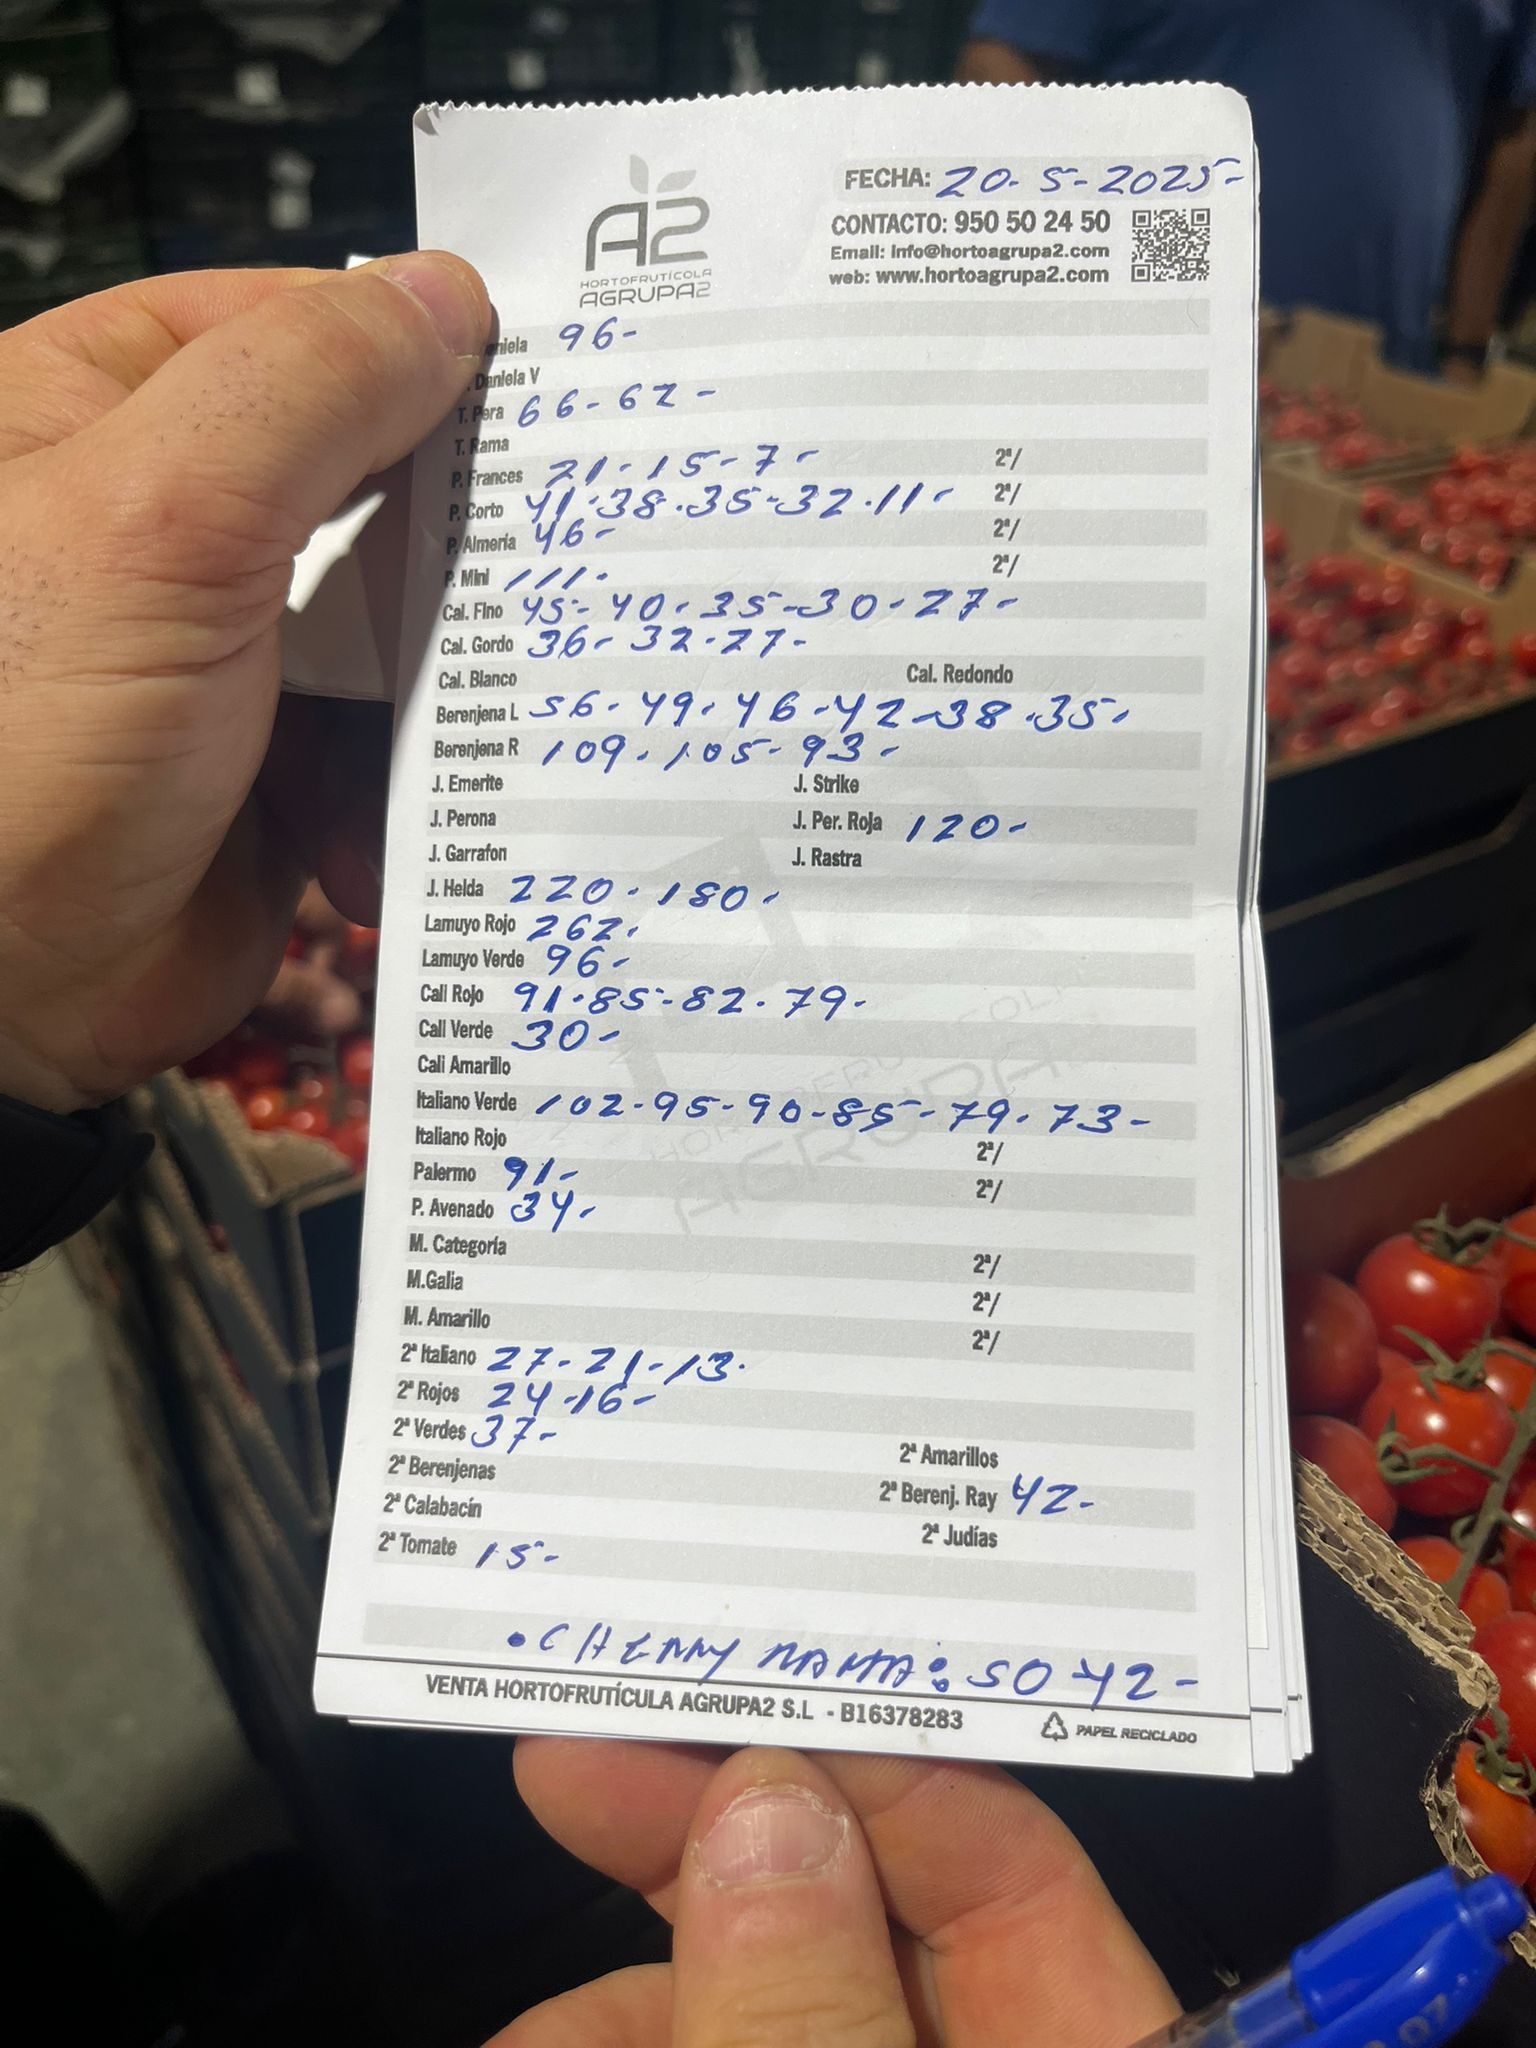 A2
HORTOFRUTÍCOLA
AGRUPA2
FECHA: 20-5-2025-
CONTACTO: 950 50 24 50
Email: info@hortoagrupa2.com
web: www.hortoagrupa2.com
96-
Daniela V
T. Pera 66-62-
T. Rama
P. Frances 21-15-7- 2ª/
P. Corto 41.38.35-32.11- 2ª/
P. Almería 46- 2ª/
P. Mini 111- 2ª/
Cal. Fino 45-40-35-30-27-
Cal. Gordo 36-32-27-
Cal. Blanco Cal. Redondo
Berenjena L 56-49-46-42-38.35-
Berenjena R 109-105-93-
J. Emerite J. Strike
J. Perona J. Per. Roja 120-
J. Garrafon J. Rastra
J. Helda 220-180-
Lamuyo Rojo 262-
Lamuyo Verde 96-
Cali Rojo 91-85-82-79-
Cali Verde 30-
Cali Amarillo
Italiano Verde 102-95-90-85-79-73-
Italiano Rojo 2ª/
Palermo 91- 2ª/
P. Avenado 34-
M. Categoría 2ª/
M.Galia 2ª/
M. Amarillo 2ª/
2ª Italiano 27-21-13.
2ª Rojos 24-16-
2ª Verdes 37- 2ª Amarillos
2ª Berenjenas 2ª Berenj. Ray 42-
2ª Calabacín 2ª Judías
2ª Tomate 15-
.CHERRY RAMA: 50-42-
VENTA HORTOFRUTÍCULA AGRUPA2 S.L - B16378283
PAPEL RECICLADO